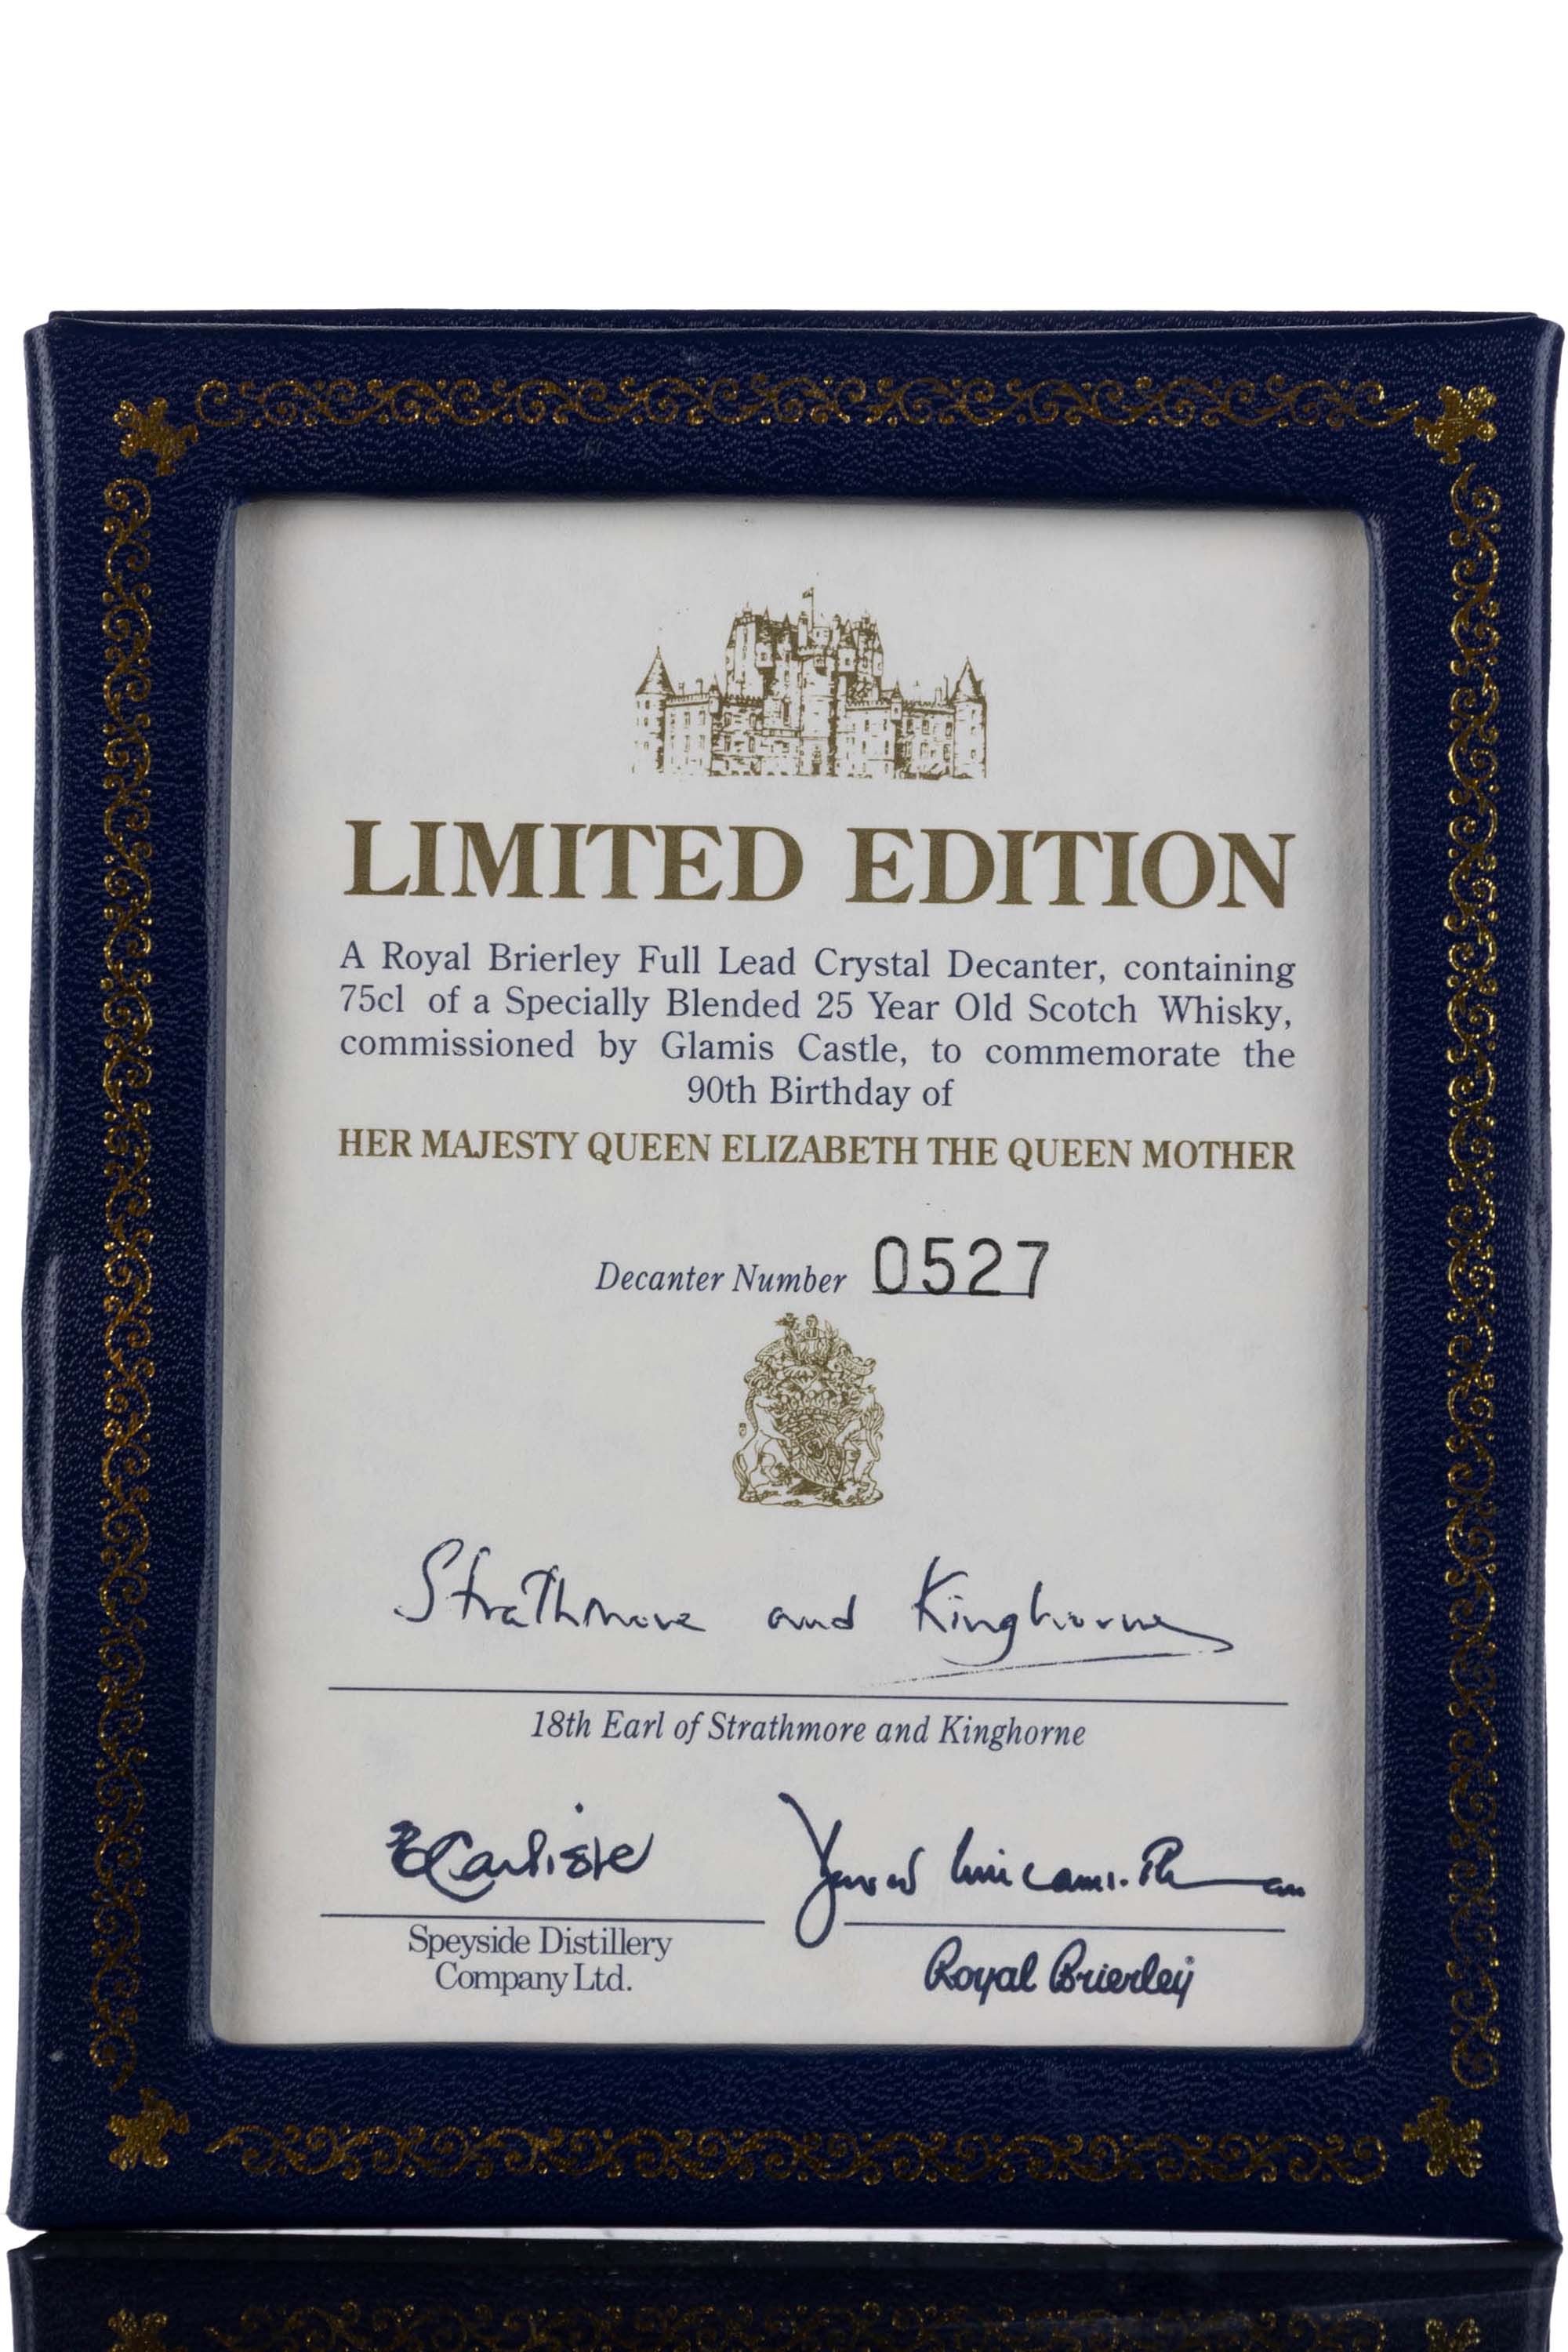 LIMITED EDITION
A Royal Brierley Full Lead Crystal Decanter, containing
75cl of a Specially Blended 25 Year Old Scotch Whisky,
commissioned by Glamis Castle, to commemorate the
90th Birthday of
HER MAJESTY QUEEN ELIZABETH THE QUEEN MOTHER
Decanter Number 0527
Strathmore and Kinghorne
18th Earl of Strathmore and Kinghorne
Carlisle
Speyside Distillery
Company Ltd.
Royal Brierley